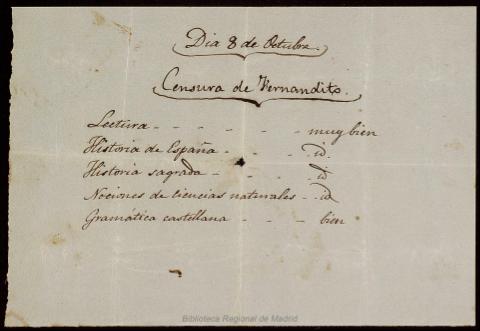 Dia 8 de Octubre.
Censura de Fernandito.
Lectura - - - - - muy bien
Historia de España - - - id.
Historia sagrada - - - - id
Nociones de ciencias naturales - - id
Gramática castellana - - - bien
Biblioteca Regional de Madrid